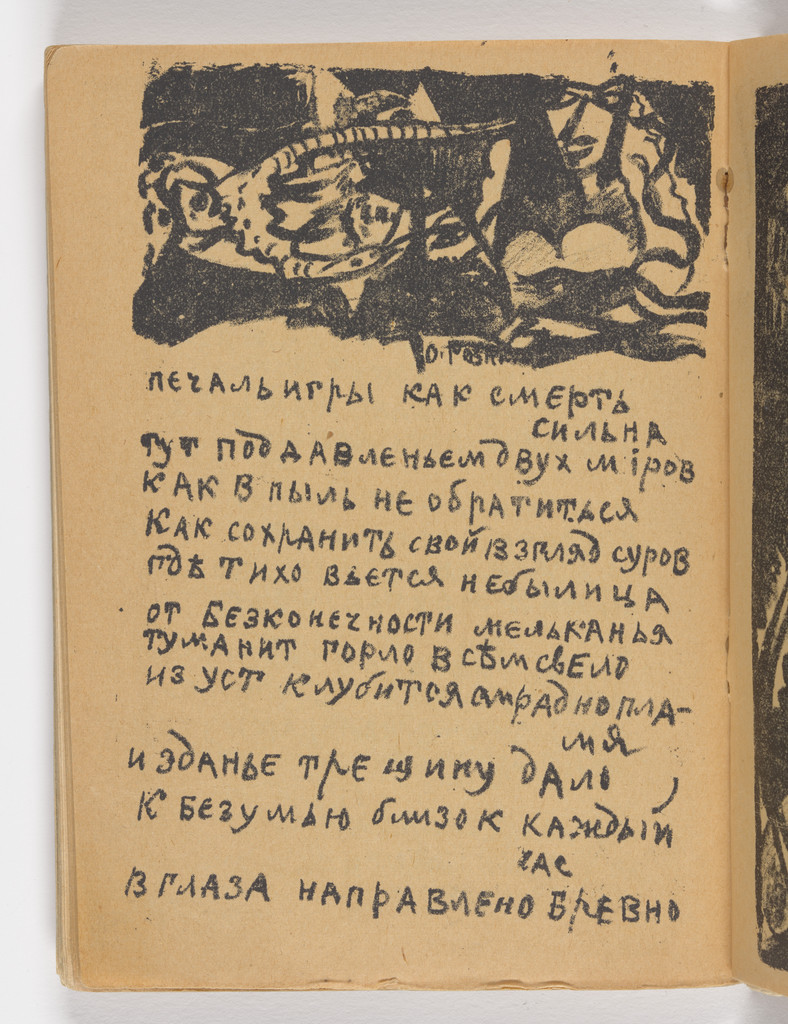 О. Розан
печаль игры как смерть
сильна
тут под давленьем двух мiров
как в пыль не обратиться
как сохранить свой взгляд суров
гдѣ тихо вьется небылица
от безконечности мельканья
туманит горло всѣм свело
из уст клубится смрадно пла-
мя
и зданье трещину дало,
к безумью близок каждый
час
в глаза направлено бревно